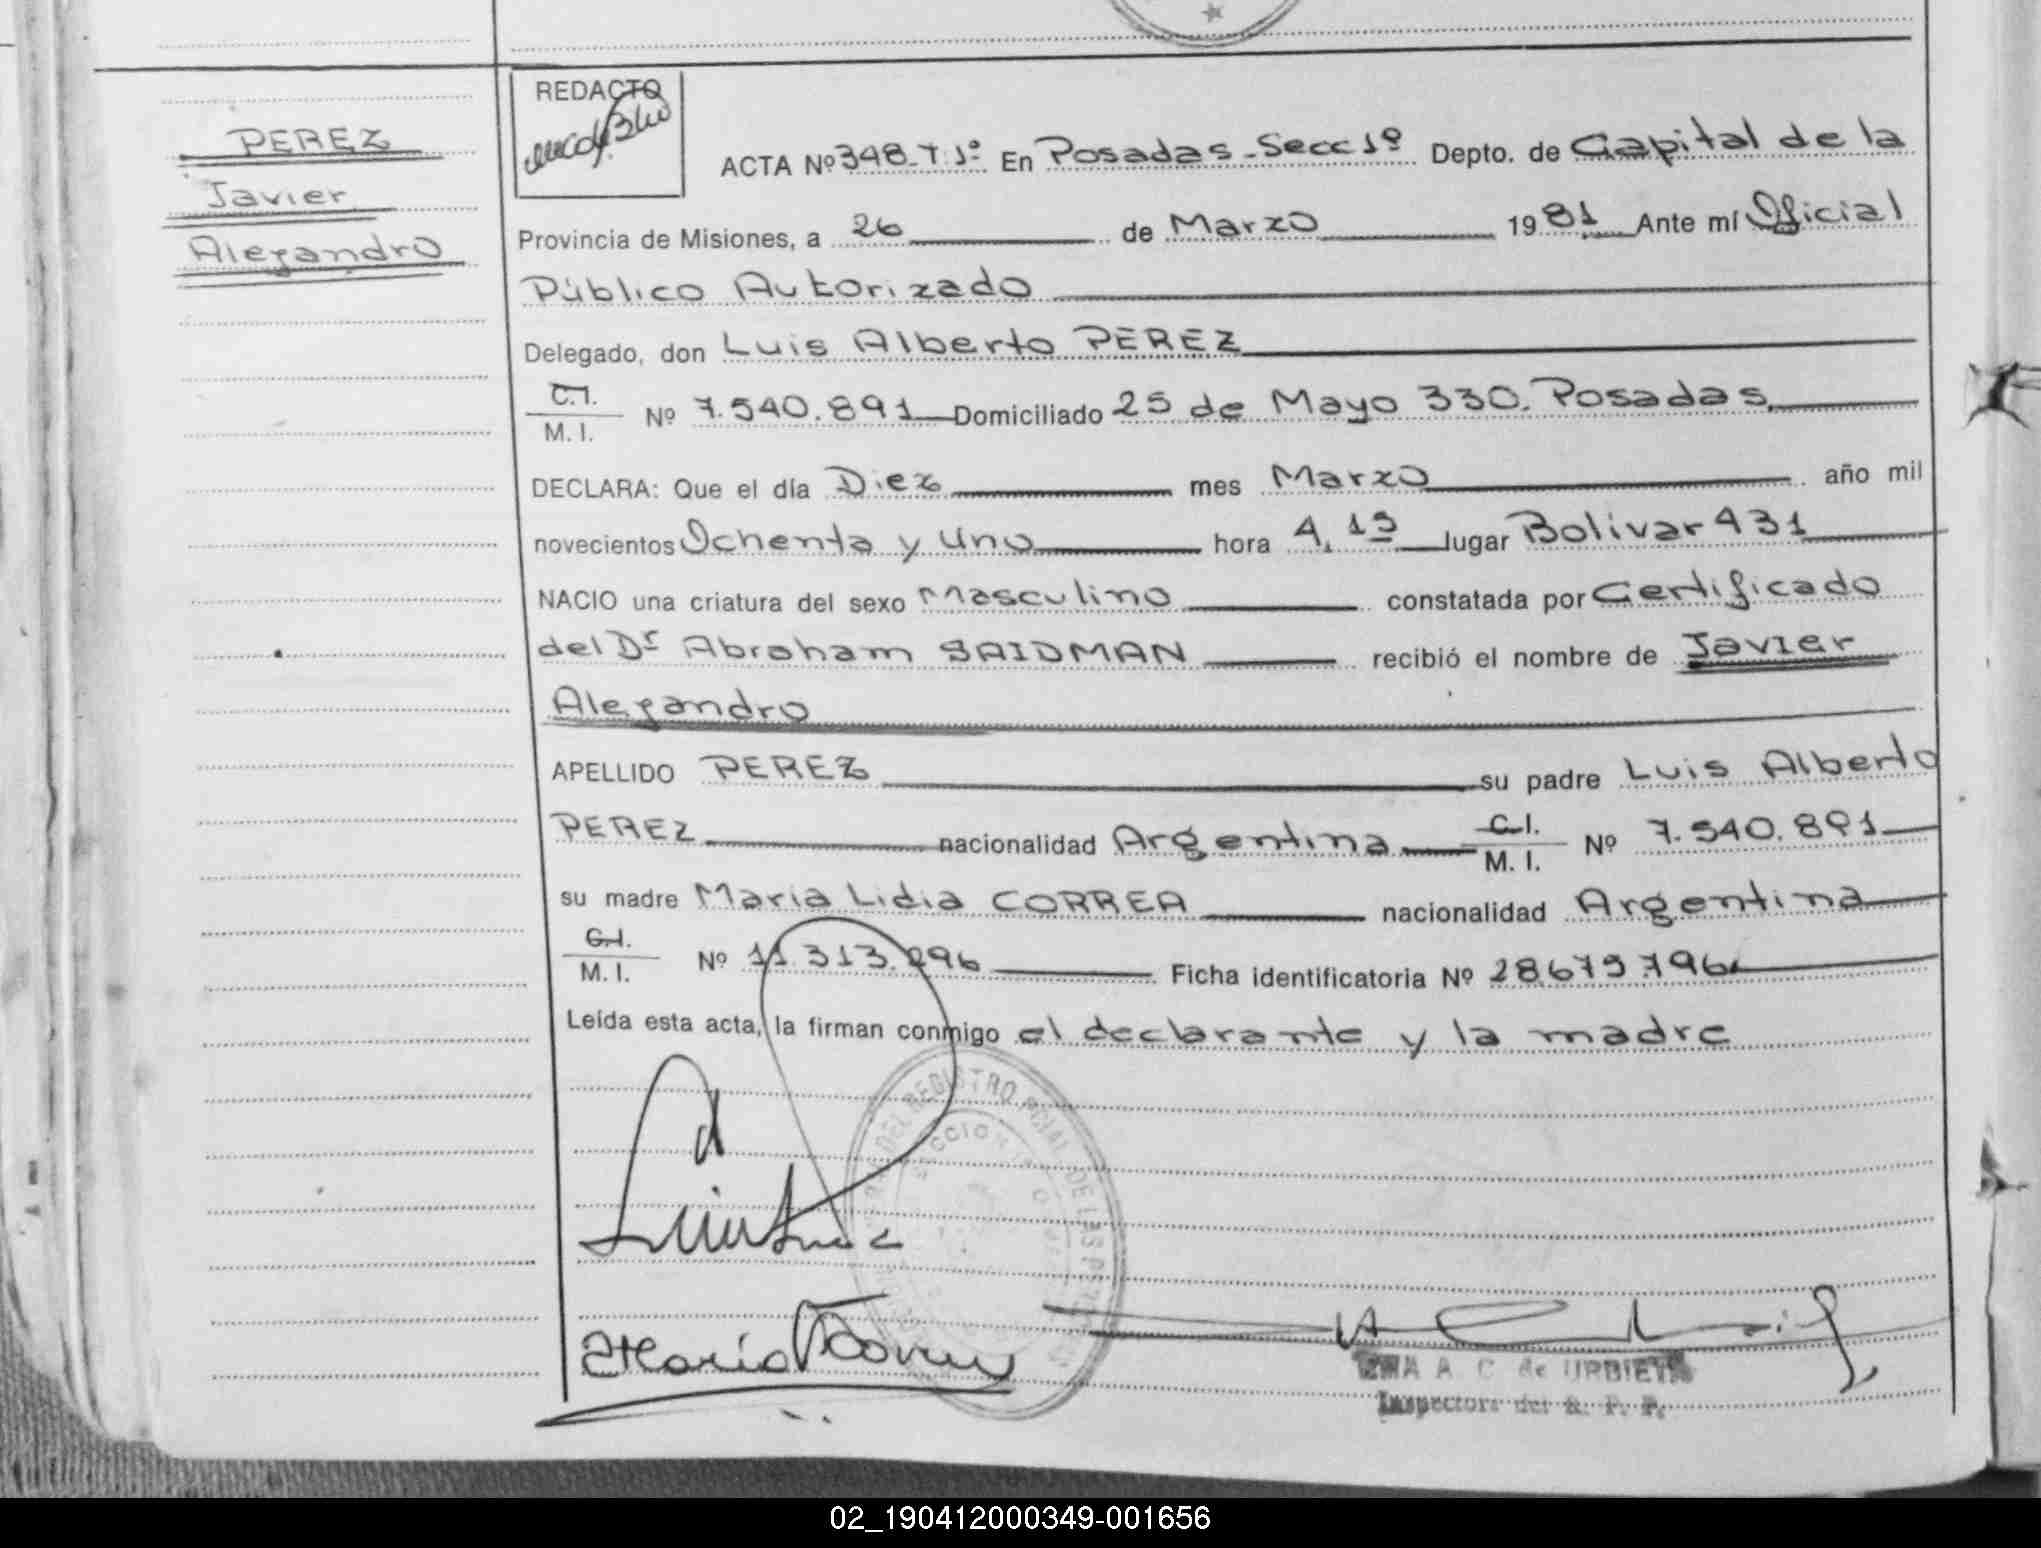 PEREZ
Javier
Alejandro
REDACTO
ACTA Nº 348-T.1º En Posadas-Secc 1º Depto. de Capital de la
Provincia de Misiones, a 26 de Marzo 19 81 Ante mí Oficial
Público Autorizado
Delegado, don Luis Alberto PEREZ
C.I.
M. I. Nº 7.540.891 Domiciliado 25 de Mayo 330. Posadas.
DECLARA: Que el día Diez mes Marzo año mil
novecientos Ochenta y Uno hora 4,15 lugar Bolivar 431
NACIO una criatura del sexo Masculino constatada por Certificado
del Dr Abraham SAIDMAN recibió el nombre de Javier
Alejandro
APELLIDO PEREZ su padre Luis Alberto
PEREZ nacionalidad Argentina C.I.
M. I. Nº 7.540.891
su madre Maria Lidia CORREA nacionalidad Argentina
C.I.
M. I. Nº 11.313.296 Ficha identificatoria Nº 28.679.796
Leída esta acta, la firman conmigo el declarante y la madre
A. C. de URBIETA
Inspectora del R. P. P.
02_190412000349-001656